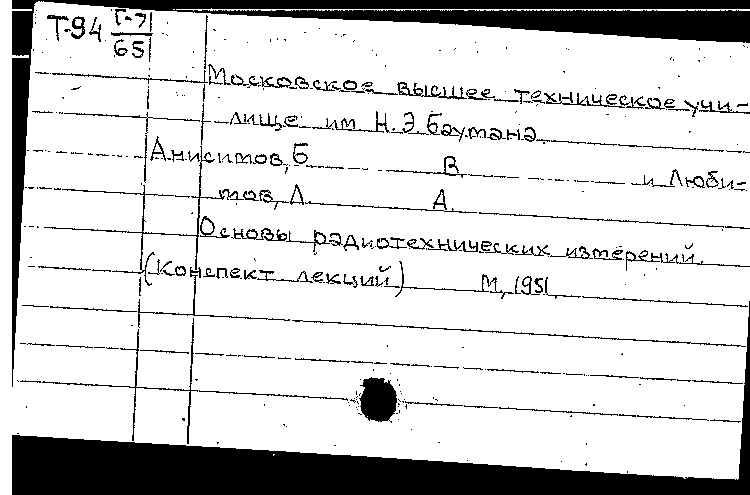 Т-94 Г-7
65
Московское высшее техническое учи-
лище им Н.Э Баумана.
Анисимов, Б В. и Люби-
мов, Л. А.
Основы радиотехнических измерений.
(Конспект лекций) М, 1951.